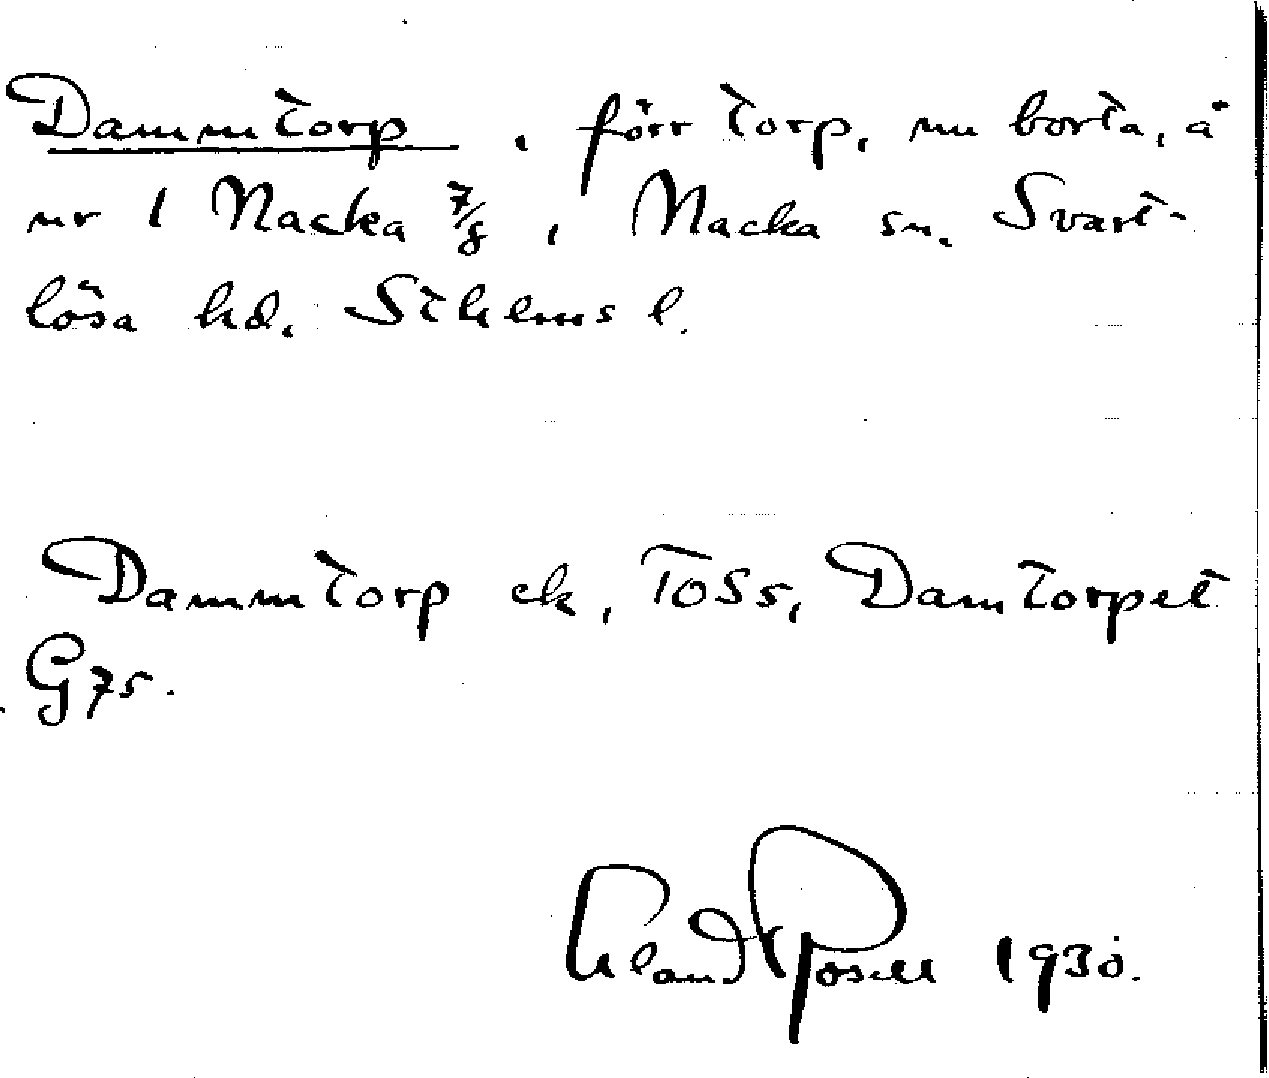 Dammtorp, förr torp, nu borta, å
nr 1 Nacka 7/8, Nacka sn. Svart-
lösa hd. Sthlms l.
Dammtorp ek, TOSs, Damtorpet
G75.
1930.